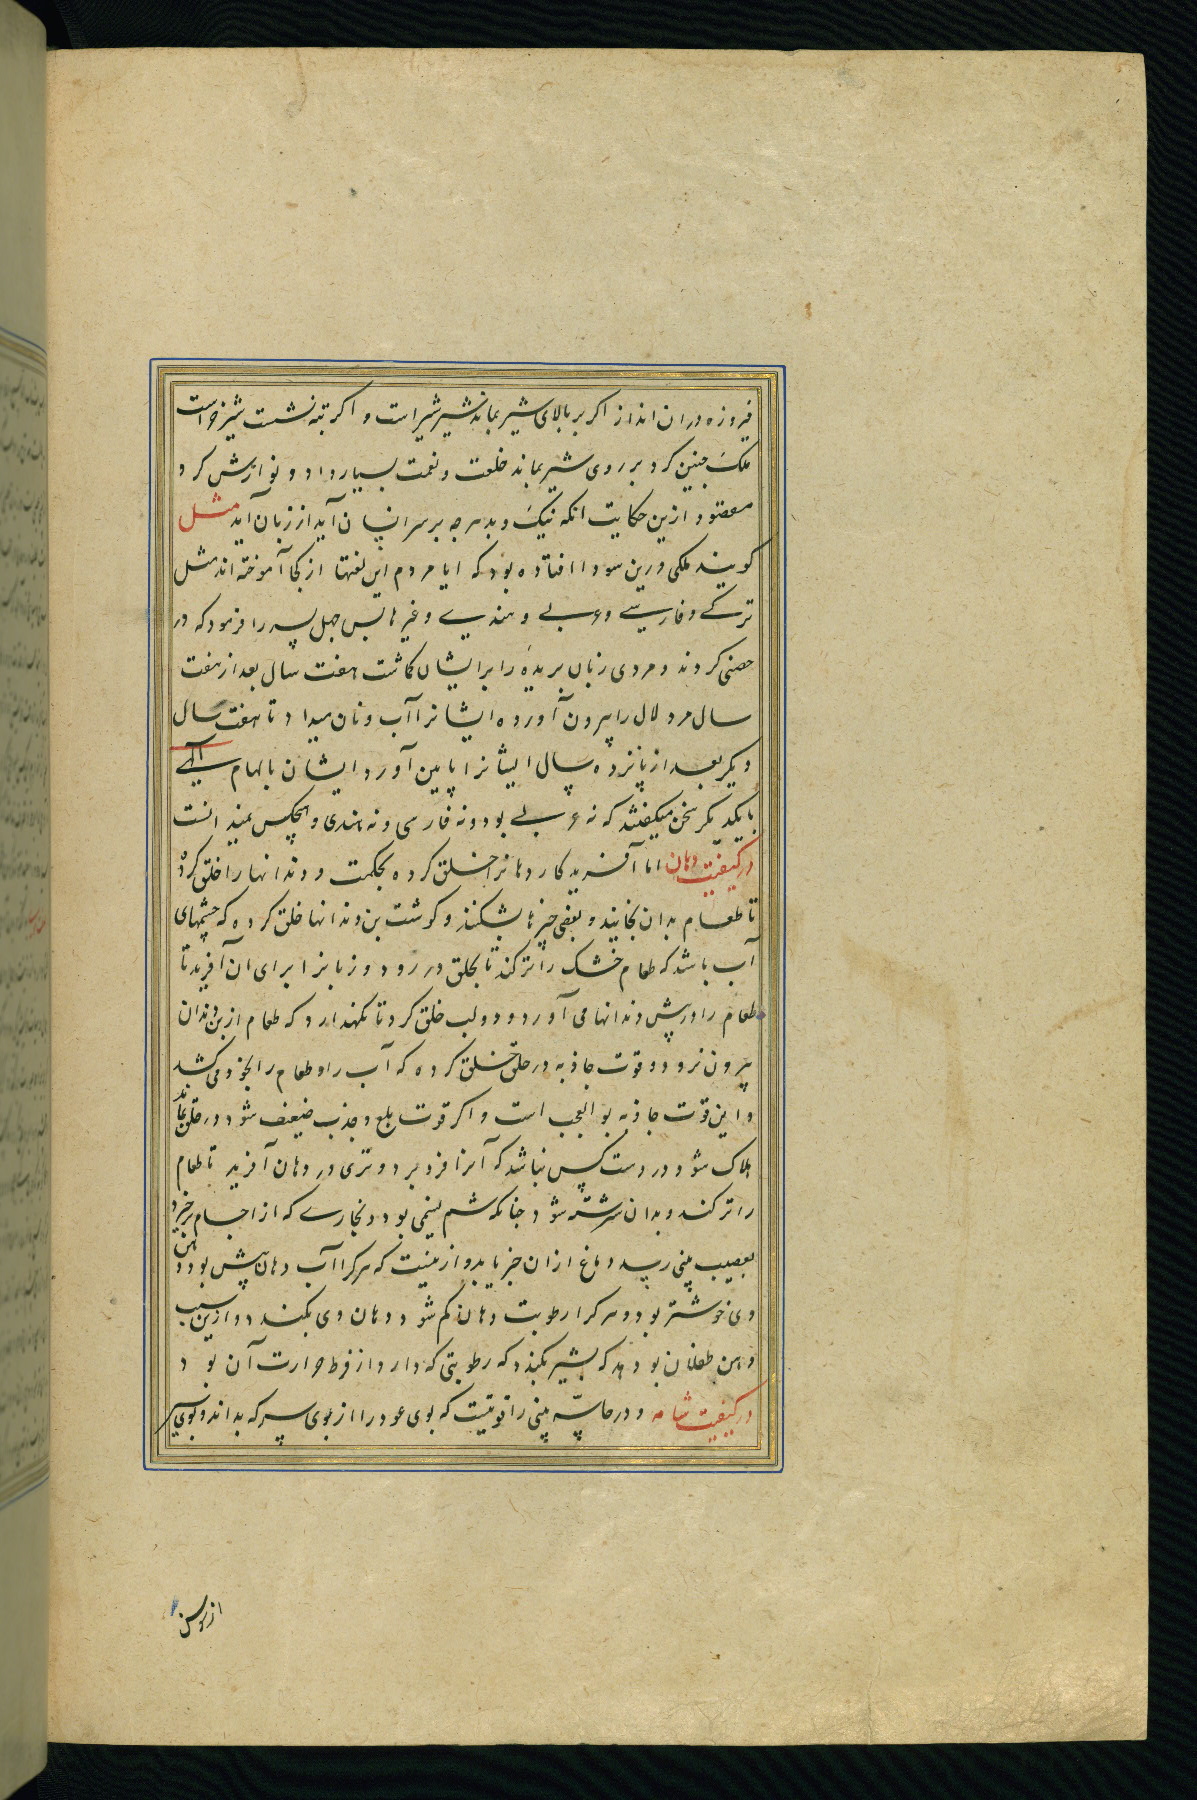 فیروزه دران انداز اکر بر بالای شیر بماند شیر شیر است و اکر ته نشست شیر خر است
ملک چنین کرد بر روی شیر بماند خلعت و نعمت بسیار داد و نوازش کرد
مقصود ازین حکایت انکه نیک و بد هرچه بر سر انسان آید از زبان آید مثل
کویند ملکی درین سودا افتاده بود که ایا مردم این لغتها از کجا آموخته اند مثل
ترکی و فارسی و عربی و هندی و غیرها پس چهل پسر را فرمود که در
حصنی کردند و مردی زبان بریده را بر ایشان کماشت هفت سال بعد از هفت
سال مرد لال را بیرون آورده ایشانرا آب و نان میداد تا هفت سال
دیکر بعد از پانزده سال ایشانرا پایین آورد ایشان بالهام الهی
با یکدیکر سخن میکفتند که نه عربی بود و نه فارسی و نه هندی و هیچکس نمیدانست
در کیفیت دهان اما آفریدکار دهانرا خلق کرده بحکمت و دندانها را خلق کرده
تا طعام بدان بخایند و بعضی چیزها بشکنند و کوشت بن دندانها خلق کرده که چشمهای
آب باشد که طعام خشک را تر کند تا بحلق در رود و زبانرا برای آن آفرید تا
طعام را در پیش دندانها می آورد و دو لب خلق کرد تا نکهدارد که طعام از بن دندان
بیرون نرود و قوت جاذبه در حلق خلق کرده که آب را و طعام را بخود می کشد
و این قوت جاذبه بو العجب است و اکر قوت بلع و جذب ضعیف شود در حلق بماند
هلاک شود و در دست کس نباشد که آنرا فرو برد و تری در دهان آفرید تا طعام
را تر کند و بدان سرشته شود چنانکه شم بینی بود و بخاری که از اجسام بر خیزد
بعصب بینی رسد دماغ ازان خبر یابد و ازینست که هر کرا آب دهان بیش بود دهن
وی خوشتر بود و هر کرا رطوبت دهان کم شود دهان وی بکندد و ازین سبب
دهن طفلان بود که بشیر بکندد که رطوبتی که دارد از فرط حرارت آن بود
در کیفیت شامه و در حاسه بینی را قوتیست که بوی عود را از بوی سرکه بداند و بوی سیر
از